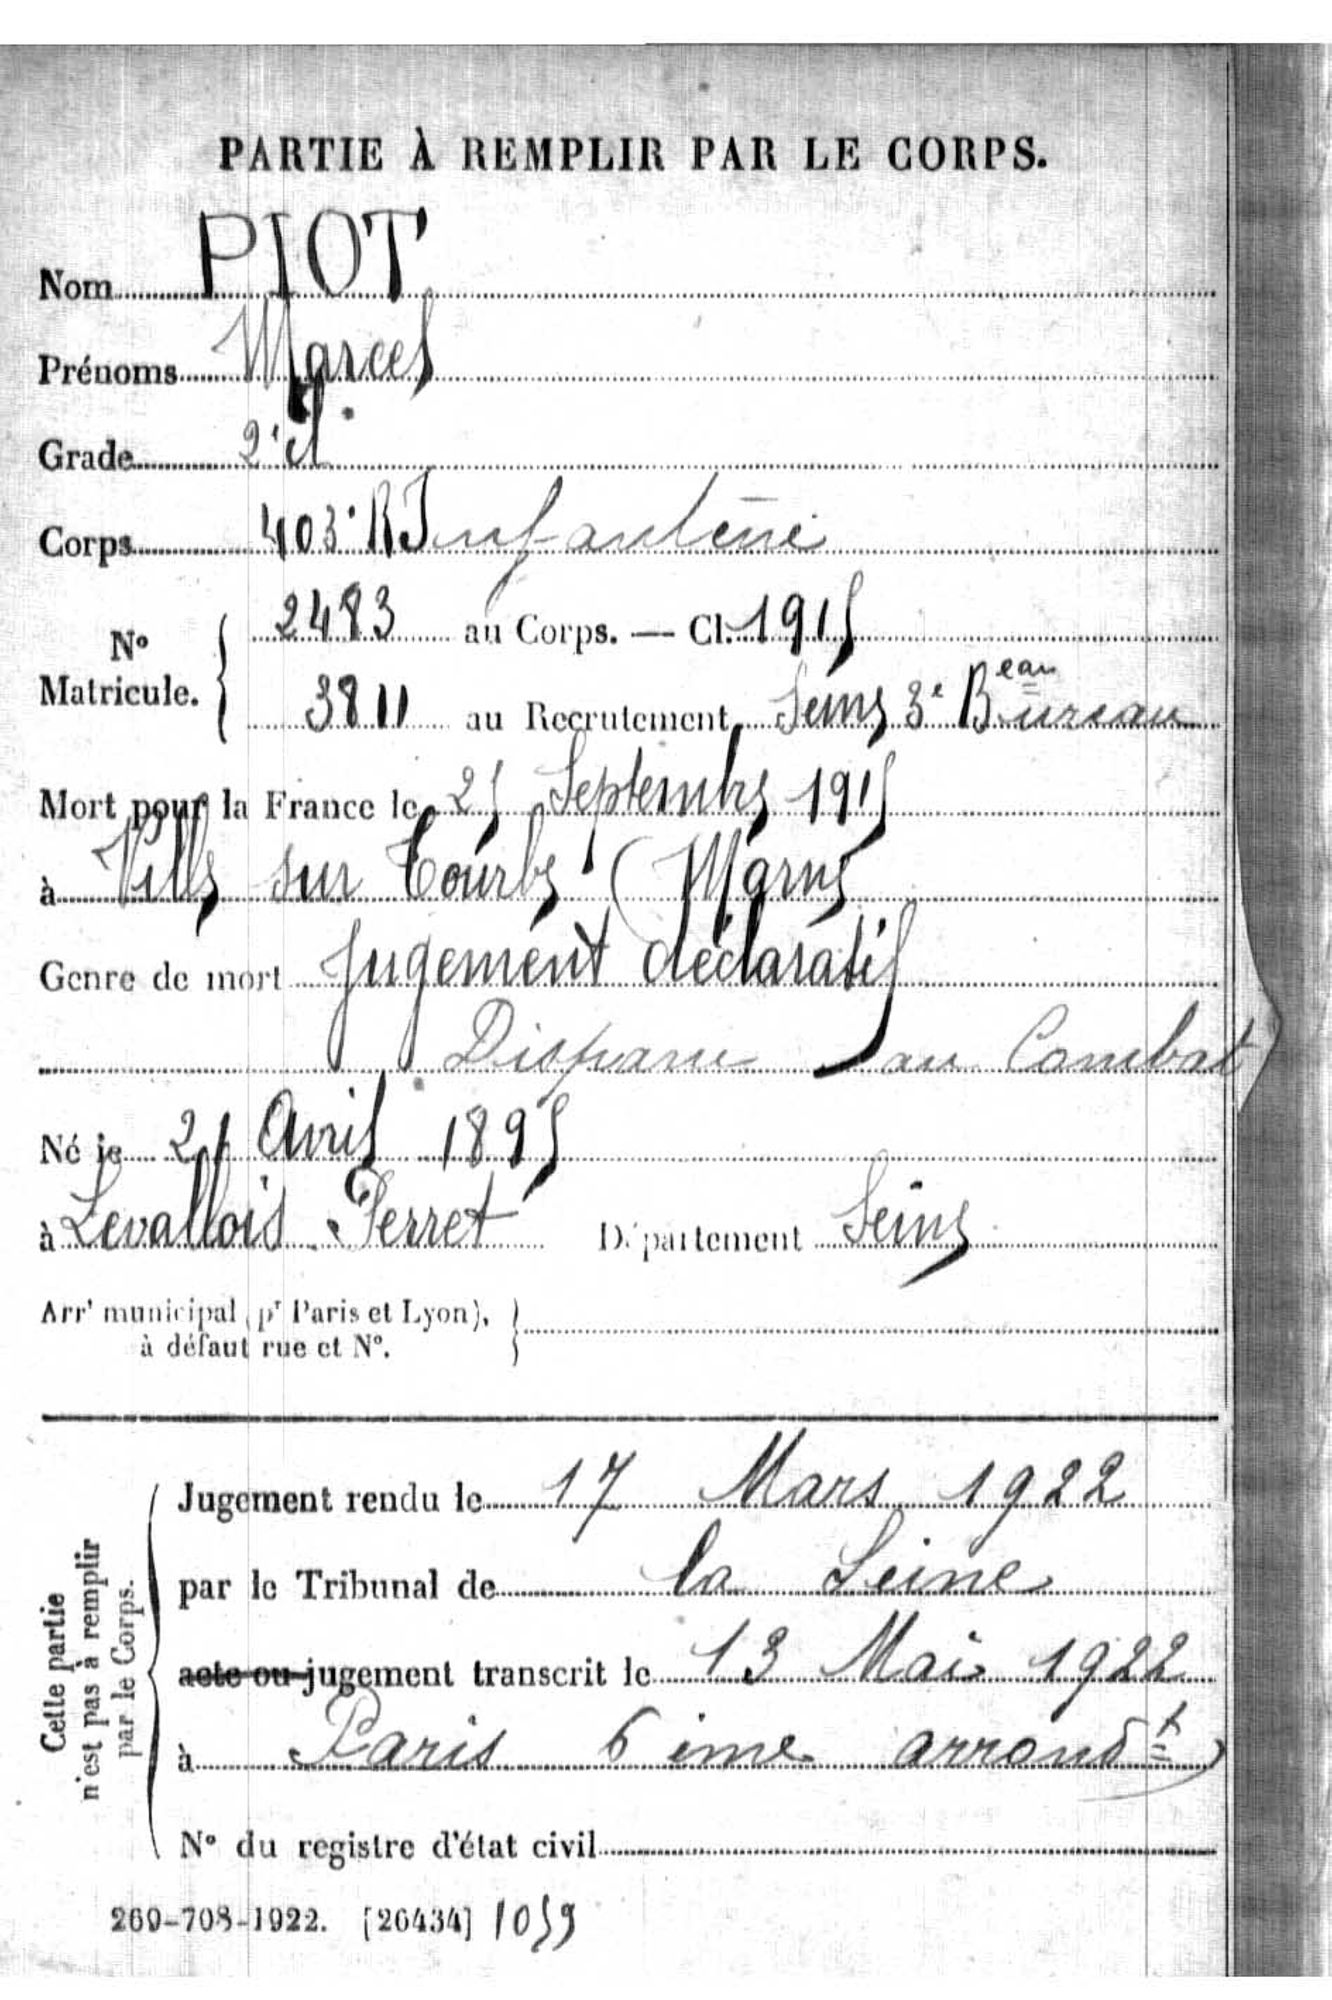 PARTIE À REMPLIR PAR LE CORPS.
Nom PIOT
Prénoms Marcel
Grade 2e Cl
Corps 403e R Infanterie
No Matricule. { 2483 au Corps. — Cl. 1915
3811 au Recrutement Seine 3e Beau Bureau
Mort pour la France le 25 Septembre 1915
à Ville sur Tourbe (Marne
Genre de mort Jugement déclaratif
Disparu au Combat
Né le 21 Avril 1895
à Levallois-Perret Département Seine
Arrt municipal (pr Paris et Lyon), à défaut rue et No.
Cette partie n'est pas à remplir par le Corps.
Jugement rendu le 17 Mars 1922
par le Tribunal de la Seine
acte ou jugement transcrit le 13 Mai 1922
à Paris 6 ème arrondt
No du registre d'état civil
269-708-1922. [26434] 1059